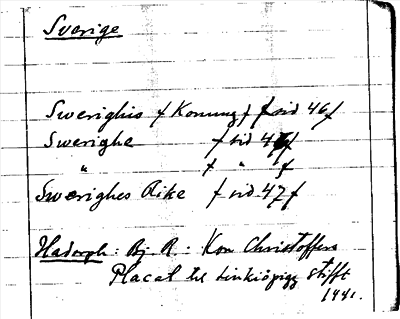 Sverige
Swerighis (Konung) (sid 46)
Swerighe (sid 47)
" ( " )
Swerighes Rike (sid. 47)
Hadorph: Bj. R: Kon Christoffers
Placat til Linkiöpigz stifft
1441.